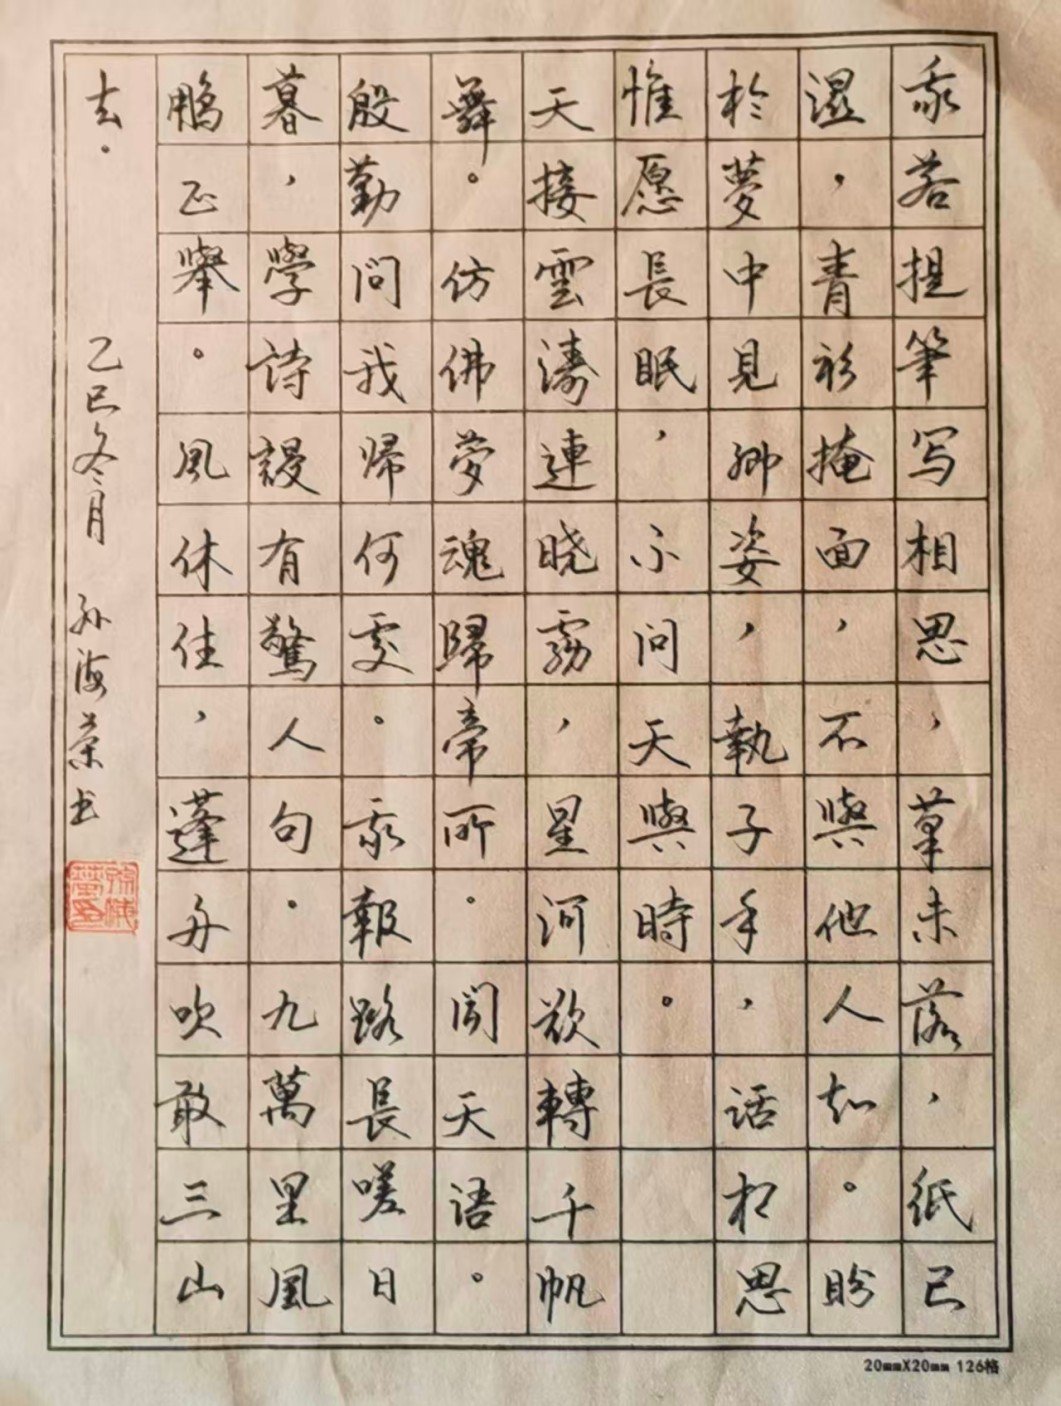 我若提筆写相思，筆未落，紙已
濕，青衫掩面，不與他人知。盼
於夢中見卿姿，執子手，话相思
惟愿長眠，不问天與時。
天接雲濤連晓霧，星河欲轉千帆
舞。仿佛夢魂歸帝所．闻天语。
殷勤问我歸何処。我報路長嗟日
暮，學詩謾有驚人句．九萬里風
鵬正舉。風休住，蓬舟吹取三山
去．
乙巳冬月 孙海荣书
20mmX20mm 126格